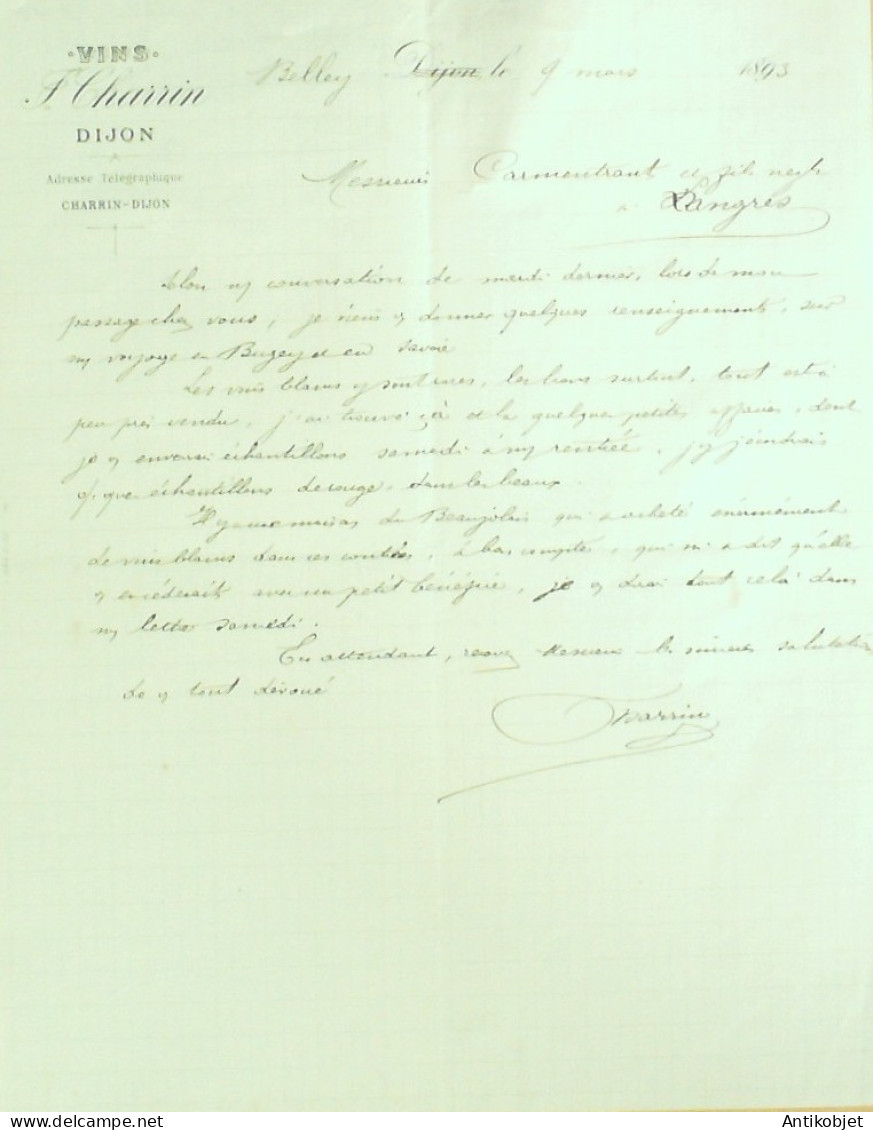 VINS
F. Charrin
DIJON
Adresse Télégraphique
CHARRIN-DIJON
Belley Dijon le 9 mars 1893
Messieurs Parmentrant et fils
à Langres
conversation de mardi dernier, lors de mon
passage chez vous, je viens y donner quelques renseignements, sur
my voyage en Bugey et en Savoie
Les vins blancs y sont rares, les bons surtout, tout est à
peu près vendu, j'ai trouvé çà et la quelques petites affaires, dont
je y enverrai échantillons samedi à my rentrée, j'y joindrais
échantillons de rouge, dans les beaux.
Il y a une maison du Beaujolais qui a acheté énormément
de vins blancs dans ces contrées, à bon compte, qui m'a dit qu'elle
y en céderait avec un petit bénéfice, je y dirai tout cela dans
my lettre samedi.
En attendant, recevez Messieurs les sincères salutations
de y tout dévoué
Charrin
Antikobjet